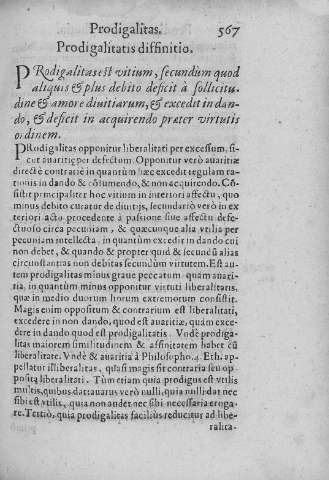 Prodigalitas. 567
Prodigalitatis diffinitio.
PRodigalitas est vitium, secundum quod
aliquis & plus debito deficit à sollicitu-
dine & amore diuitiarum, & excedit in dan-
do, & deficit in acquirendo præter virtutis
ordinem.
PRodigalitas opponitur liberalitati per excessum, si-
cut auaritię per defectum. Opponitur verò auaritiæ
directè contrariè in quantùm hæc excedit regulam ra-
tionis in dando & cõsumendo, & non acquirendo. Cõ-
sistit principaliter hoc vitium in interiori affectu, qui
minus debito curatur de diuitijs, secundariò verò in ex
teriori actu procedente à passione siue affectu defe-
ctuoso circa pecuniam, & quæcunque alia vtilia per
pecuniam intellecta, in quantùm excedit in dando cui
non debet, & quando & propter quid & secundũ alias
circunstantias non debitas secundùm virtutem. Est au-
tem prodigalitas minus graue peccatum quàm auari-
tia, in quantùm minus opponitur virtuti liberalitatis,
quæ in medio duorum horum extremorum consistit.
Magis enim oppositum & contrarium est liberalitati,
excedere in non dando, quod est auaritiæ, quàm exce-
dere in dando quod est prodigalitatis. Vndè prodiga-
litas maiorem similitudinem & affinitatem habet cũ
liberalitate. Vndè & auaritia à Philosopho. 4. Eth. ap-
pellatur illiberalitas, quasi magis sit contraria seu op-
posita liberalitati. Tùm etiam quia prodigus est vtilis
multis, quibus dat, auarus verò nulli, quia nulli dat nec
sibi est vtilis, quia non audet nec sibi necessaria eroga-
re. Tertiò, quia prodigalitas faciliùs reducitur ad libe-
ralita-